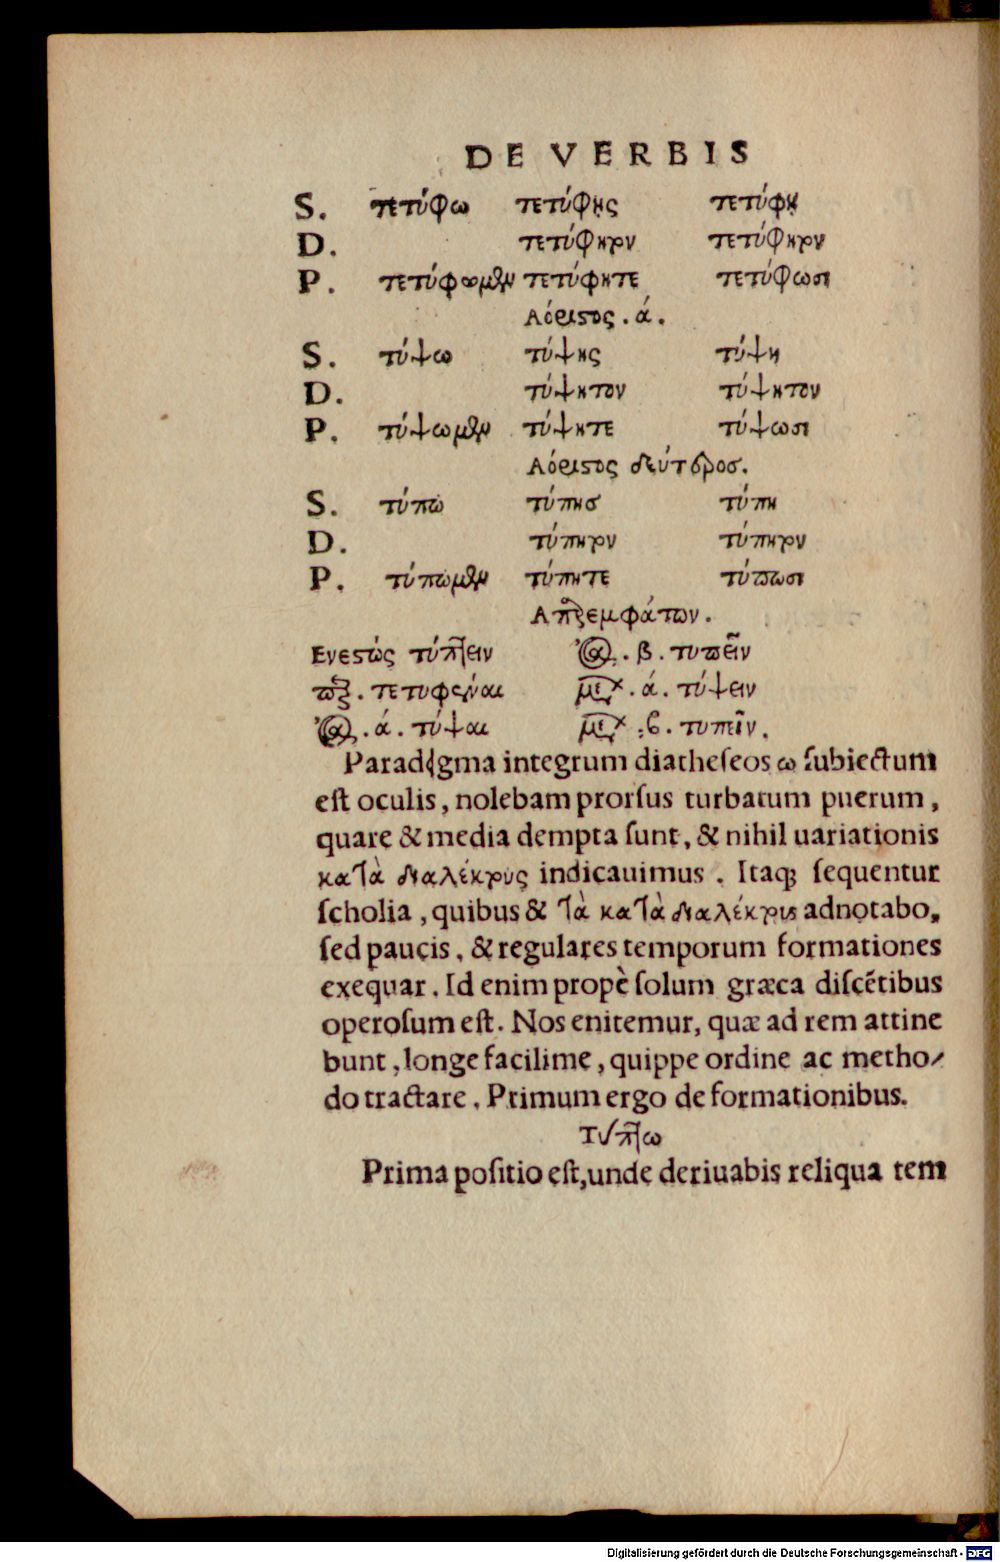 DE VERBIS
S. πετύφω τετύφῃς τετύφῃ
D. τετύφητον τετύφητον
P. τετύφωμεν τετύφητε τετύφωσι
Αόριστος . ά .
S. τύψω τύψῃς τύψῃ
D. τύψητον τύψητον
P. τύψωμεν τύψητε τύψωσι
Αόριστος δεύτερος.
S. τύπω τύπης τύπη
D. τύπητον τύπητον
P. τύπωμεν τύπητε τύπωσι
Απαρεμφάτων .
Ενεστὼς τύπτειν . β . τυπεῖν
. τετυφέναι . ά . τύψειν
. ά . τύψαι . β . τυπεῖν .
Paradigma integrum diatheseos ω subiectum
est oculis, nolebam prorsus turbatum puerum,
quare & media dempta sunt, & nihil uariationis
κατὰ διαλέκτους indicauimus . Itaq; sequentur
scholia, quibus & τὰ κατὰ διαλέκτους adnotabo,
sed paucis, & regulares temporum formationes
exequar. Id enim propè solum græca discētibus
operosum est. Nos enitemur, quæ ad rem attine
bunt, longe facilime, quippe ordine ac metho-
do tractare. Primum ergo de formationibus.
Τύπτω
Prima positio est, unde deriuabis reliqua tem
Digitalisierung gefördert durch die Deutsche Forschungsgemeinschaft - DFG